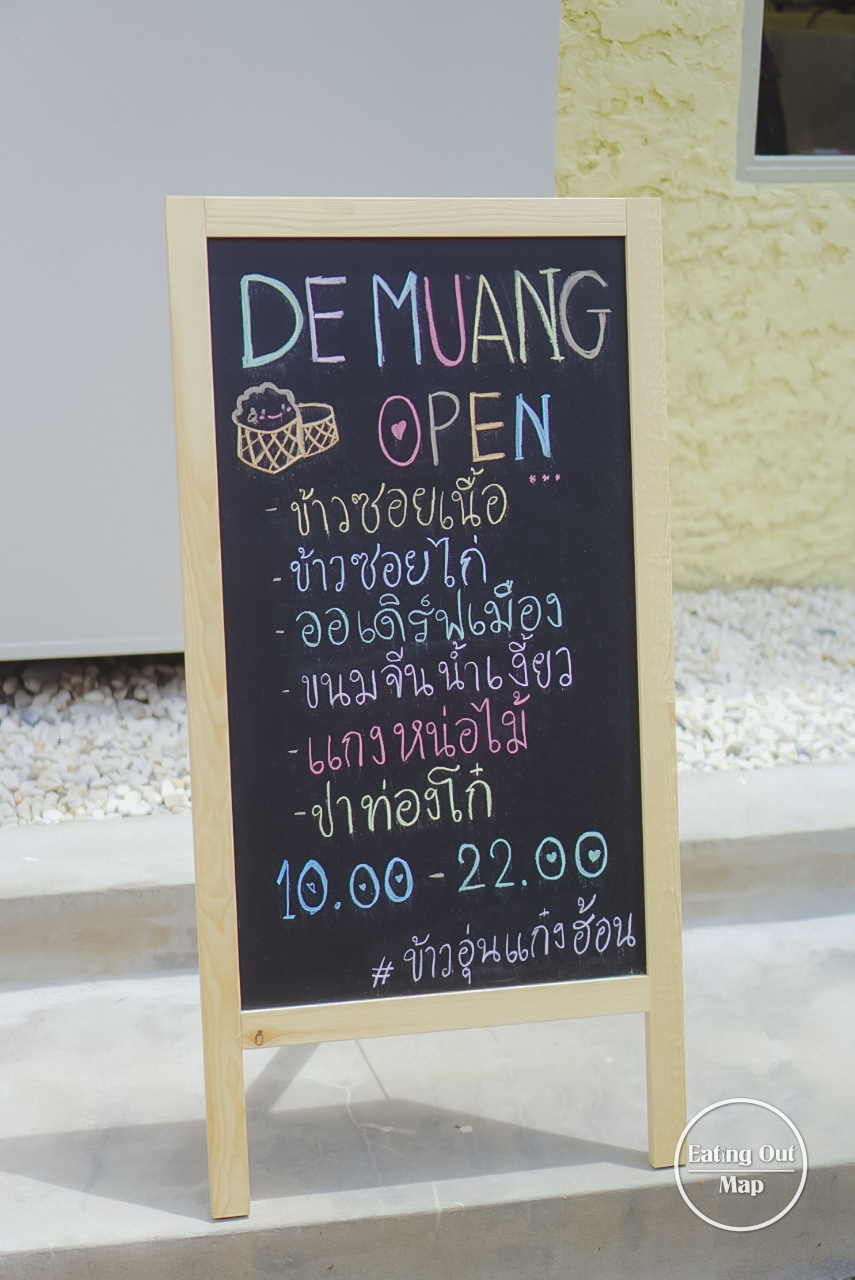 DE MUANG
OPEN
- ข้าวซอยเนื้อ
- ข้าวซอยไก่
- ออเดิร์ฟเมือง
- ขนมจีนน้ำเงี้ยว
- แกงหน่อไม้
- ปาท่องโก๋
10.00 - 22.00
# ข้าวอุ่นแก๋งฮ้อน
Eating Out
Map